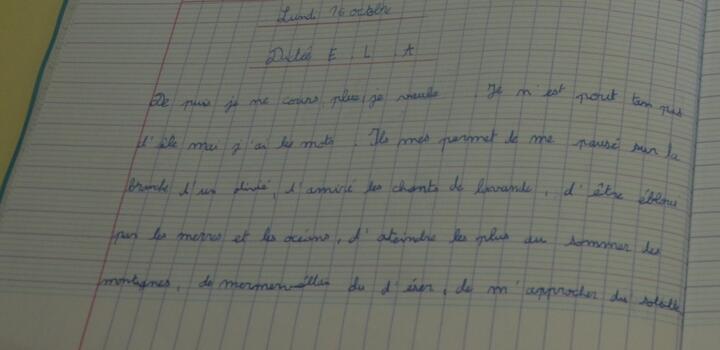 Lundi 16 octobre
Dictée E. L. A
De puis je ne cours plus, je . Je n'est pourt tam pas
d'aile mai j'ai les mots. Ils mes permet de me pausé sur la
branche d'un , d'amiré les chants de lavande, d'être ébloui
par les merres et les océans, d'ateindre les plus au sommer des
montagnes, de du d'éser, de m'approcher du